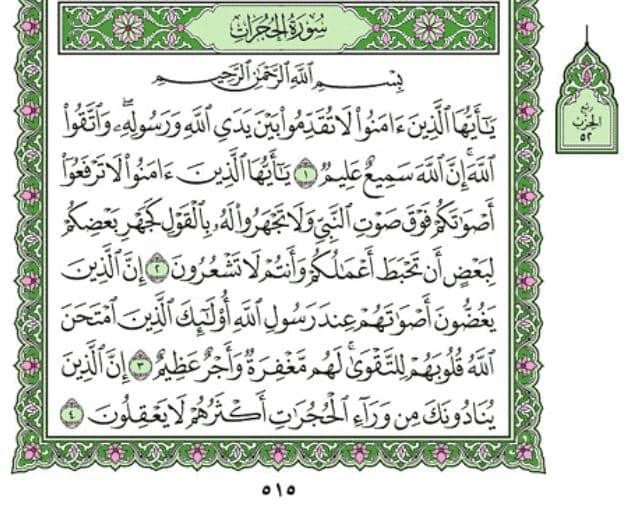 سُورَةُ الحُجُرَاتِ
بِسْمِ ٱللَّهِ ٱلرَّحْمَٰنِ ٱلرَّحِيمِ
يَٰٓأَيُّهَا ٱلَّذِينَ ءَامَنُوا۟ لَا تُقَدِّمُوا۟ بَيْنَ يَدَىِ ٱللَّهِ وَرَسُولِهِۦۖ وَٱتَّقُوا۟
ٱللَّهَۚ إِنَّ ٱللَّهَ سَمِيعٌ عَلِيمٌ ١ يَٰٓأَيُّهَا ٱلَّذِينَ ءَامَنُوا۟ لَا تَرْفَعُوٓا۟
أَصْوَٰتَكُمْ فَوْقَ صَوْتِ ٱلنَّبِىِّ وَلَا تَجْهَرُوا۟ لَهُۥ بِٱلْقَوْلِ كَجَهْرِ بَعْضِكُمْ
لِبَعْضٍ أَن تَحْبَطَ أَعْمَٰلُكُمْ وَأَنتُمْ لَا تَشْعُرُونَ ٢ إِنَّ ٱلَّذِينَ
يَغُضُّونَ أَصْوَٰتَهُمْ عِندَ رَسُولِ ٱللَّهِ أُو۟لَٰٓئِكَ ٱلَّذِينَ ٱمْتَحَنَ
ٱللَّهُ قُلُوبَهُمْ لِلتَّقْوَىٰۚ لَهُم مَّغْفِرَةٌ وَأَجْرٌ عَظِيمٌ ٣ إِنَّ ٱلَّذِينَ
يُنَادُونَكَ مِن وَرَآءِ ٱلْحُجُرَٰتِ أَكْثَرُهُمْ لَا يَعْقِلُونَ ٤
ربع
الحزب
٥٢
٥١٥